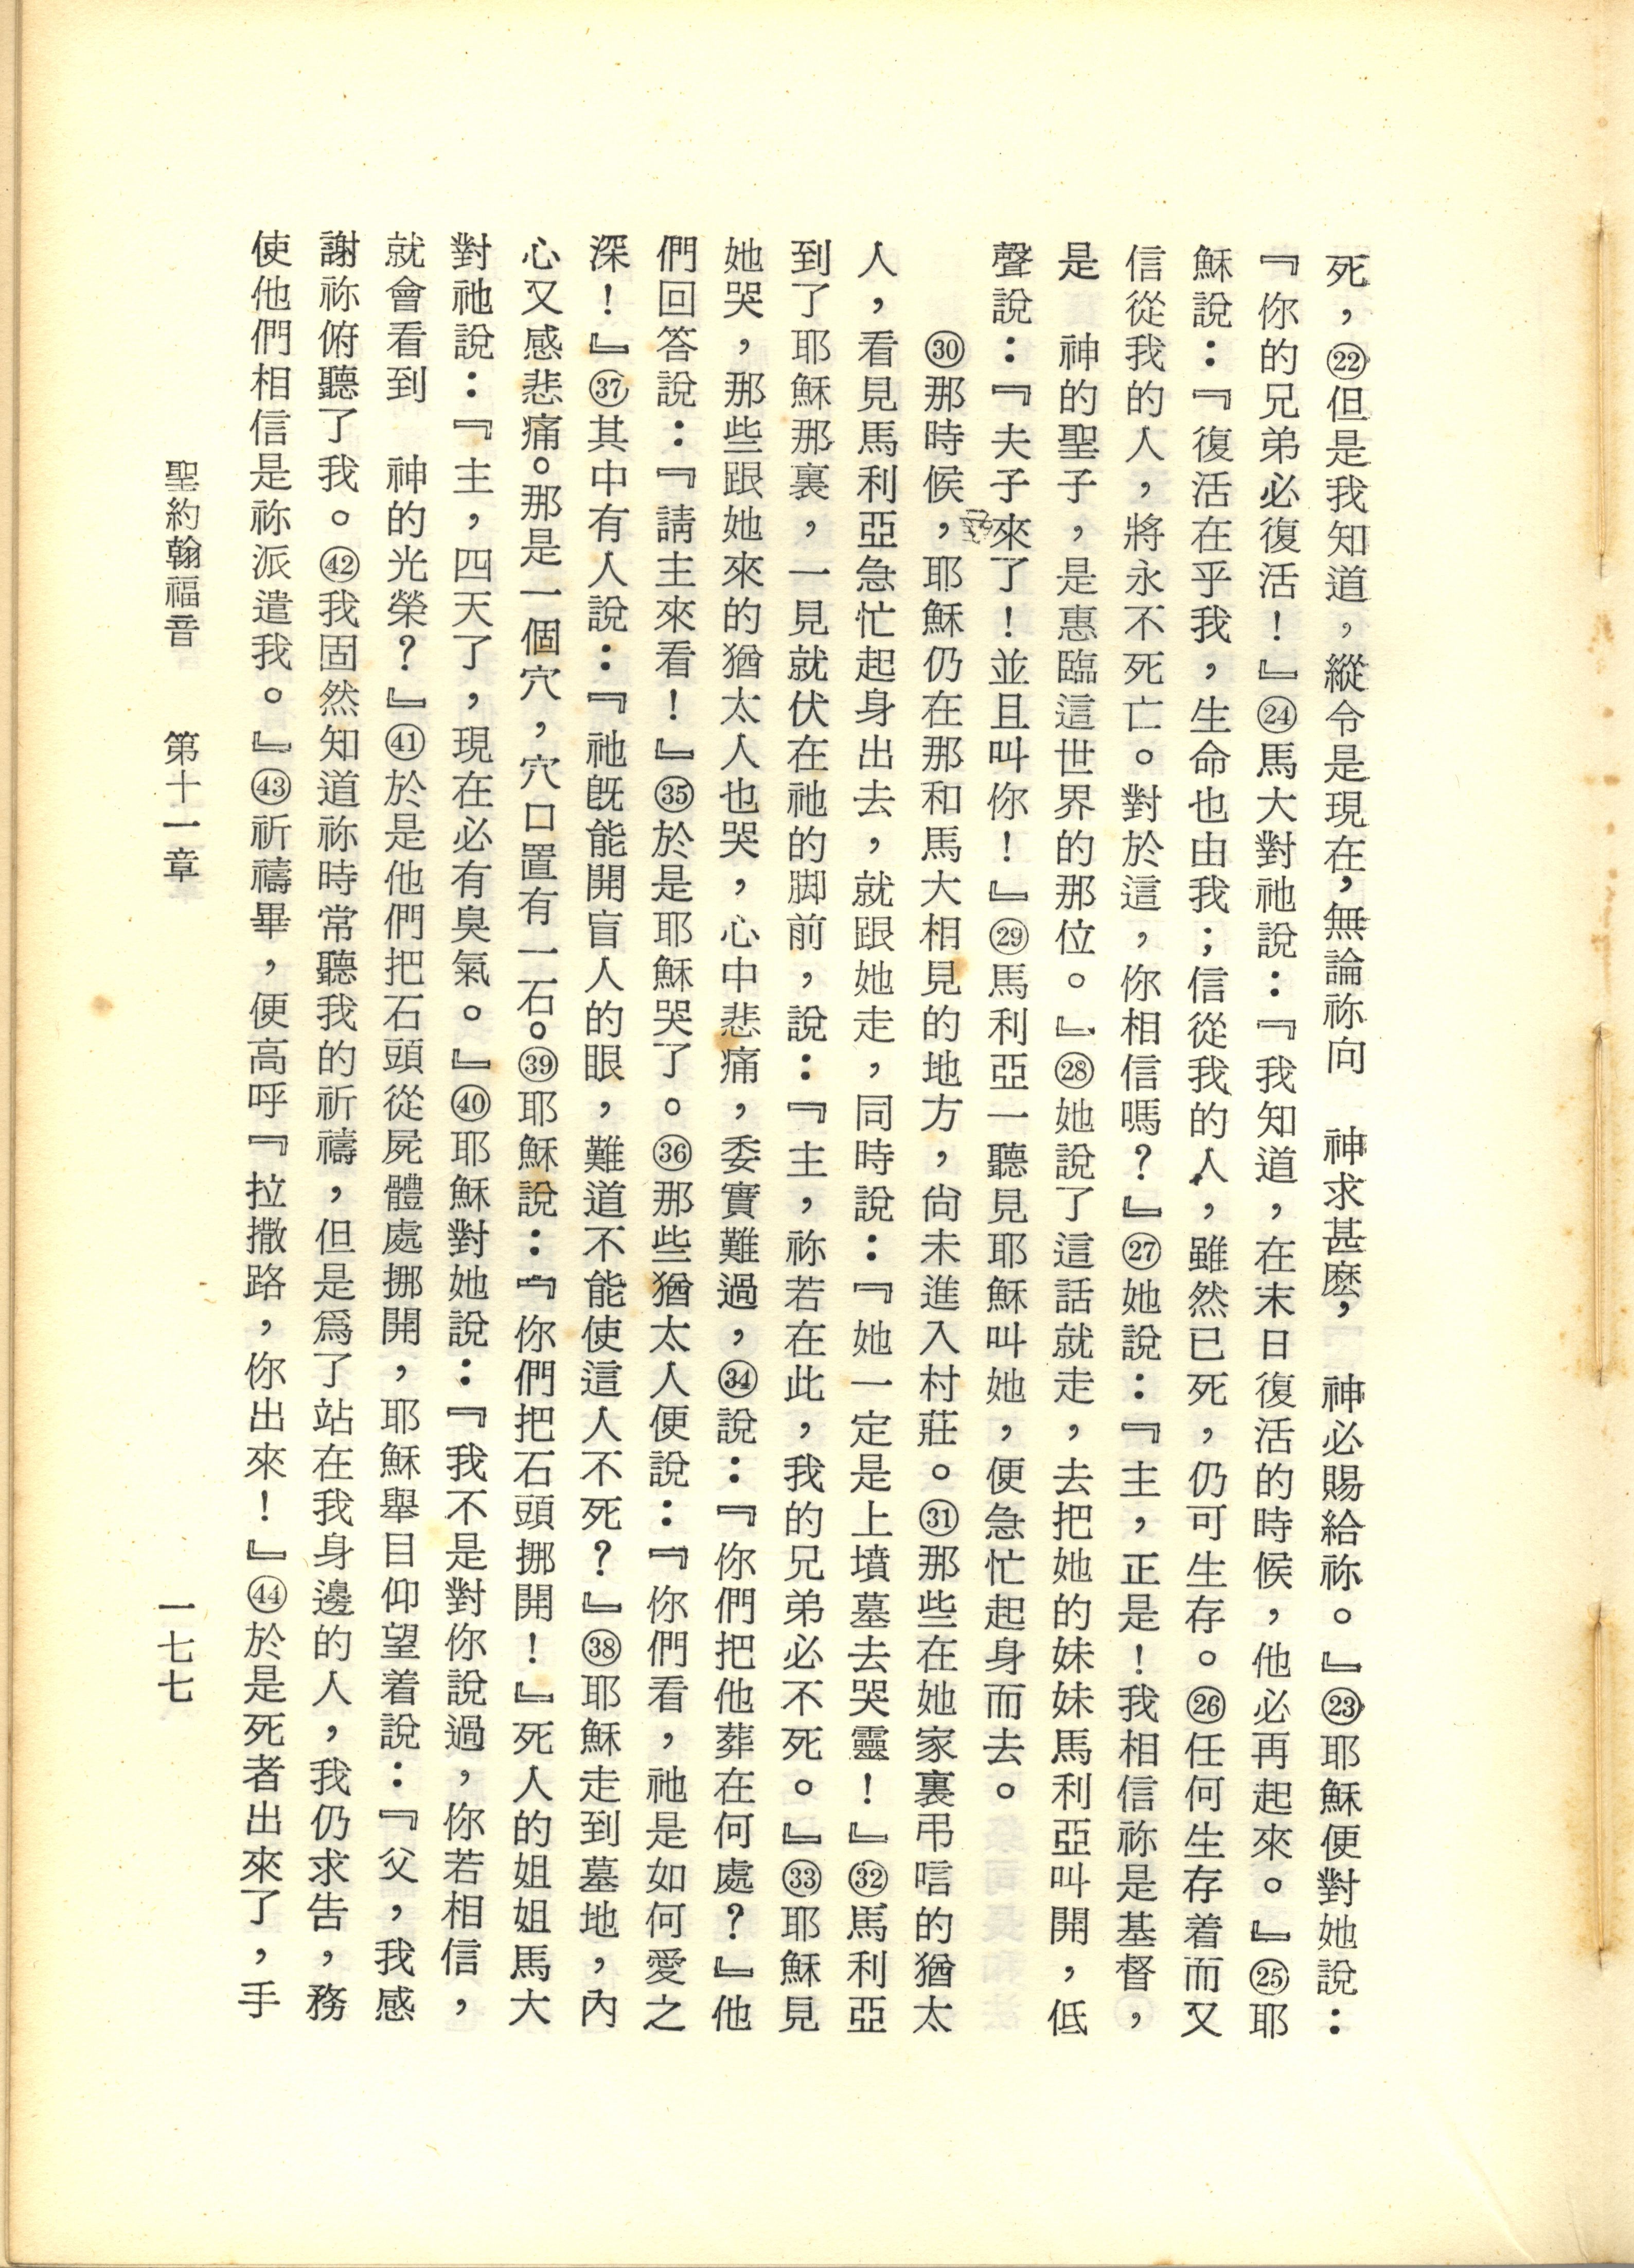 死，㉒但是我知道，縱令是現在，無論祢向　神求甚麽，　神必賜給祢。』㉓耶穌便對她說：
『你的兄弟必復活！』㉔馬大對祂說：『我知道，在末日復活的時候，他必再起來。』㉕耶
穌說：『復活在乎我，生命也由我；信從我的人，雖然已死，仍可生存。㉖任何生存着而又
信從我的人，將永不死亡。對於這，你相信嗎？』㉗她說：『主，正是！我相信祢是基督，
是　神的聖子，是惠臨這世界的那位。』㉘她說了這話就走，去把她的妹妹馬利亞叫開，低
聲說：『夫子來了！並且叫你！』㉙馬利亞一聽見耶穌叫她，便急忙起身而去。
㉚那時候，耶穌仍在那和馬大相見的地方，尙未進入村莊。㉛那些在她家裏弔唁的猶太
人，看見馬利亞急忙起身出去，就跟她走，同時說：『她一定是上墳墓去哭靈！』㉜馬利亞
到了耶穌那裏，一見就伏在祂的脚前，說：『主，祢若在此，我的兄弟必不死。』㉝耶穌見
她哭，那些跟她來的猶太人也哭，心中悲痛，委實難過，㉞說：『你們把他葬在何處？』他
們回答說：『請主來看！』㉟於是耶穌哭了。㊱那些猶太人便說：『你們看，祂是如何愛之
深！』㊲其中有人說：『祂旣能開盲人的眼，難道不能使這人不死？』㊳耶穌走到墓地，內
心又感悲痛。那是一個穴，穴口置有一石。㊴耶穌說：『你們把石頭挪開！』死人的姐姐馬大
對祂說：『主，四天了，現在必有臭氣。』㊵耶穌對她說：『我不是對你說過，你若相信，
就會看到　神的光榮？』㊶於是他們把石頭從屍體處挪開，耶穌舉目仰望着說：『父，我感
謝祢俯聽了我。㊷我固然知道祢時常聽我的祈禱，但是爲了站在我身邊的人，我仍求告，務
使他們相信是祢派遣我。』㊸祈禱畢，便高呼『拉撒路，你出來！』㊹於是死者出來了，手
聖約翰福音　第十一章　一七七